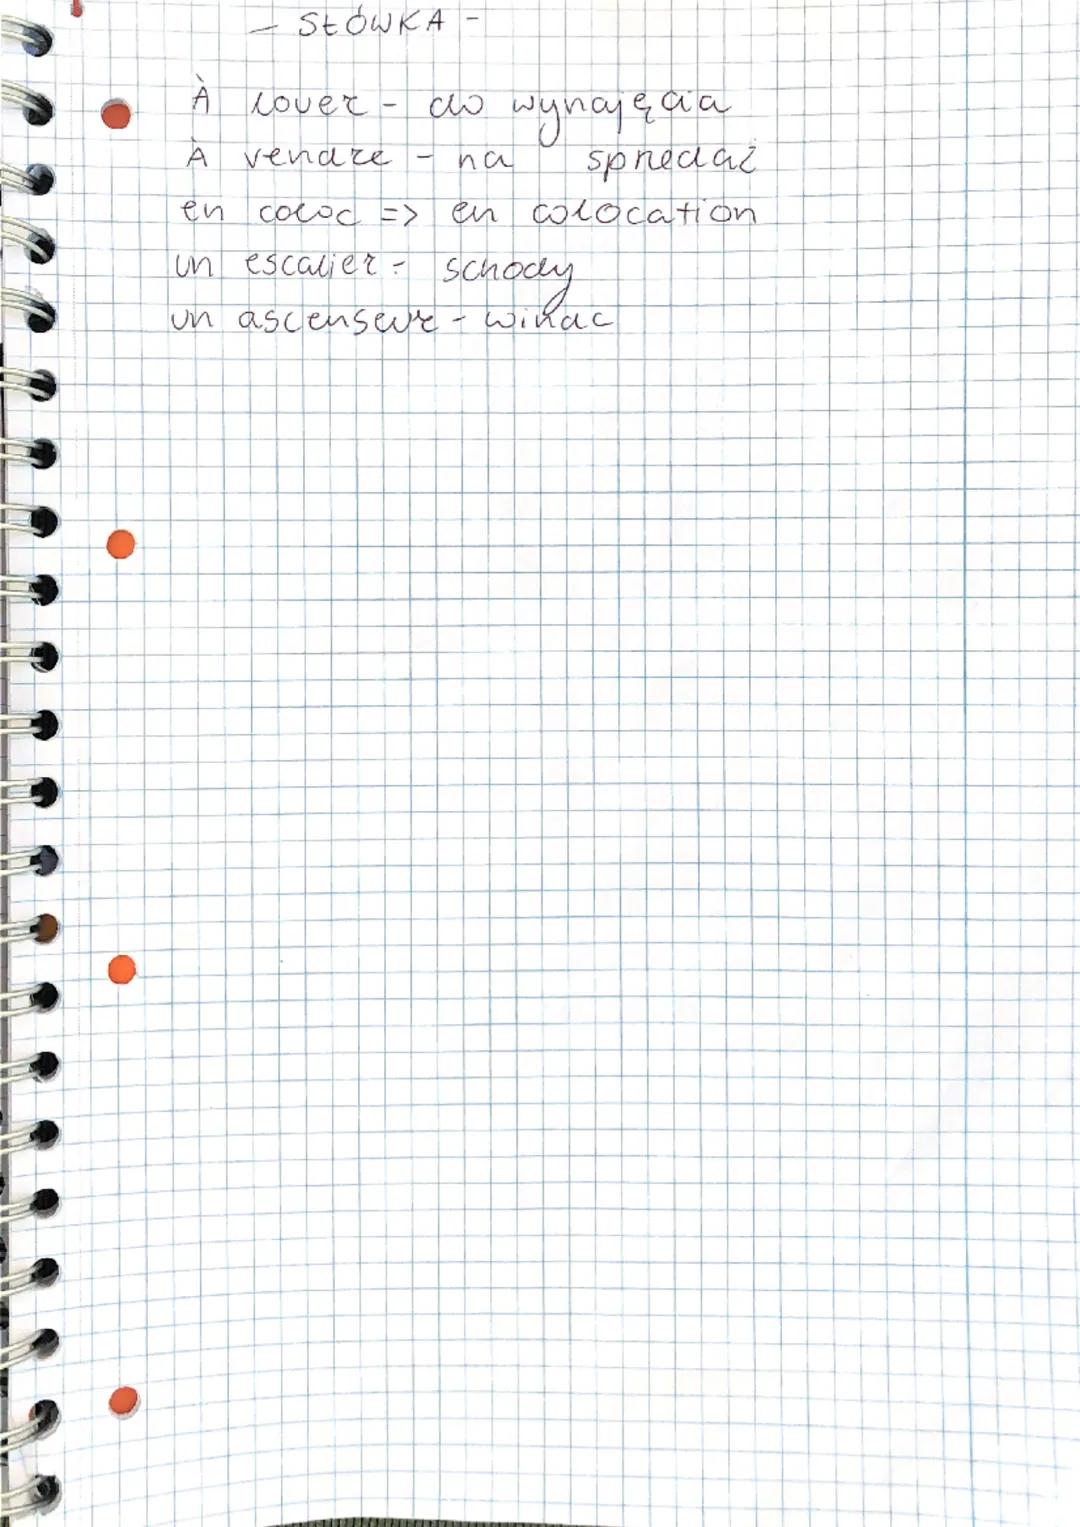 - SŁÓWKA -
À louer - do wynajęcia
À vendre - na sprzedaż
en coloc => en colocation
un escalier - schody
un ascenseur - winda